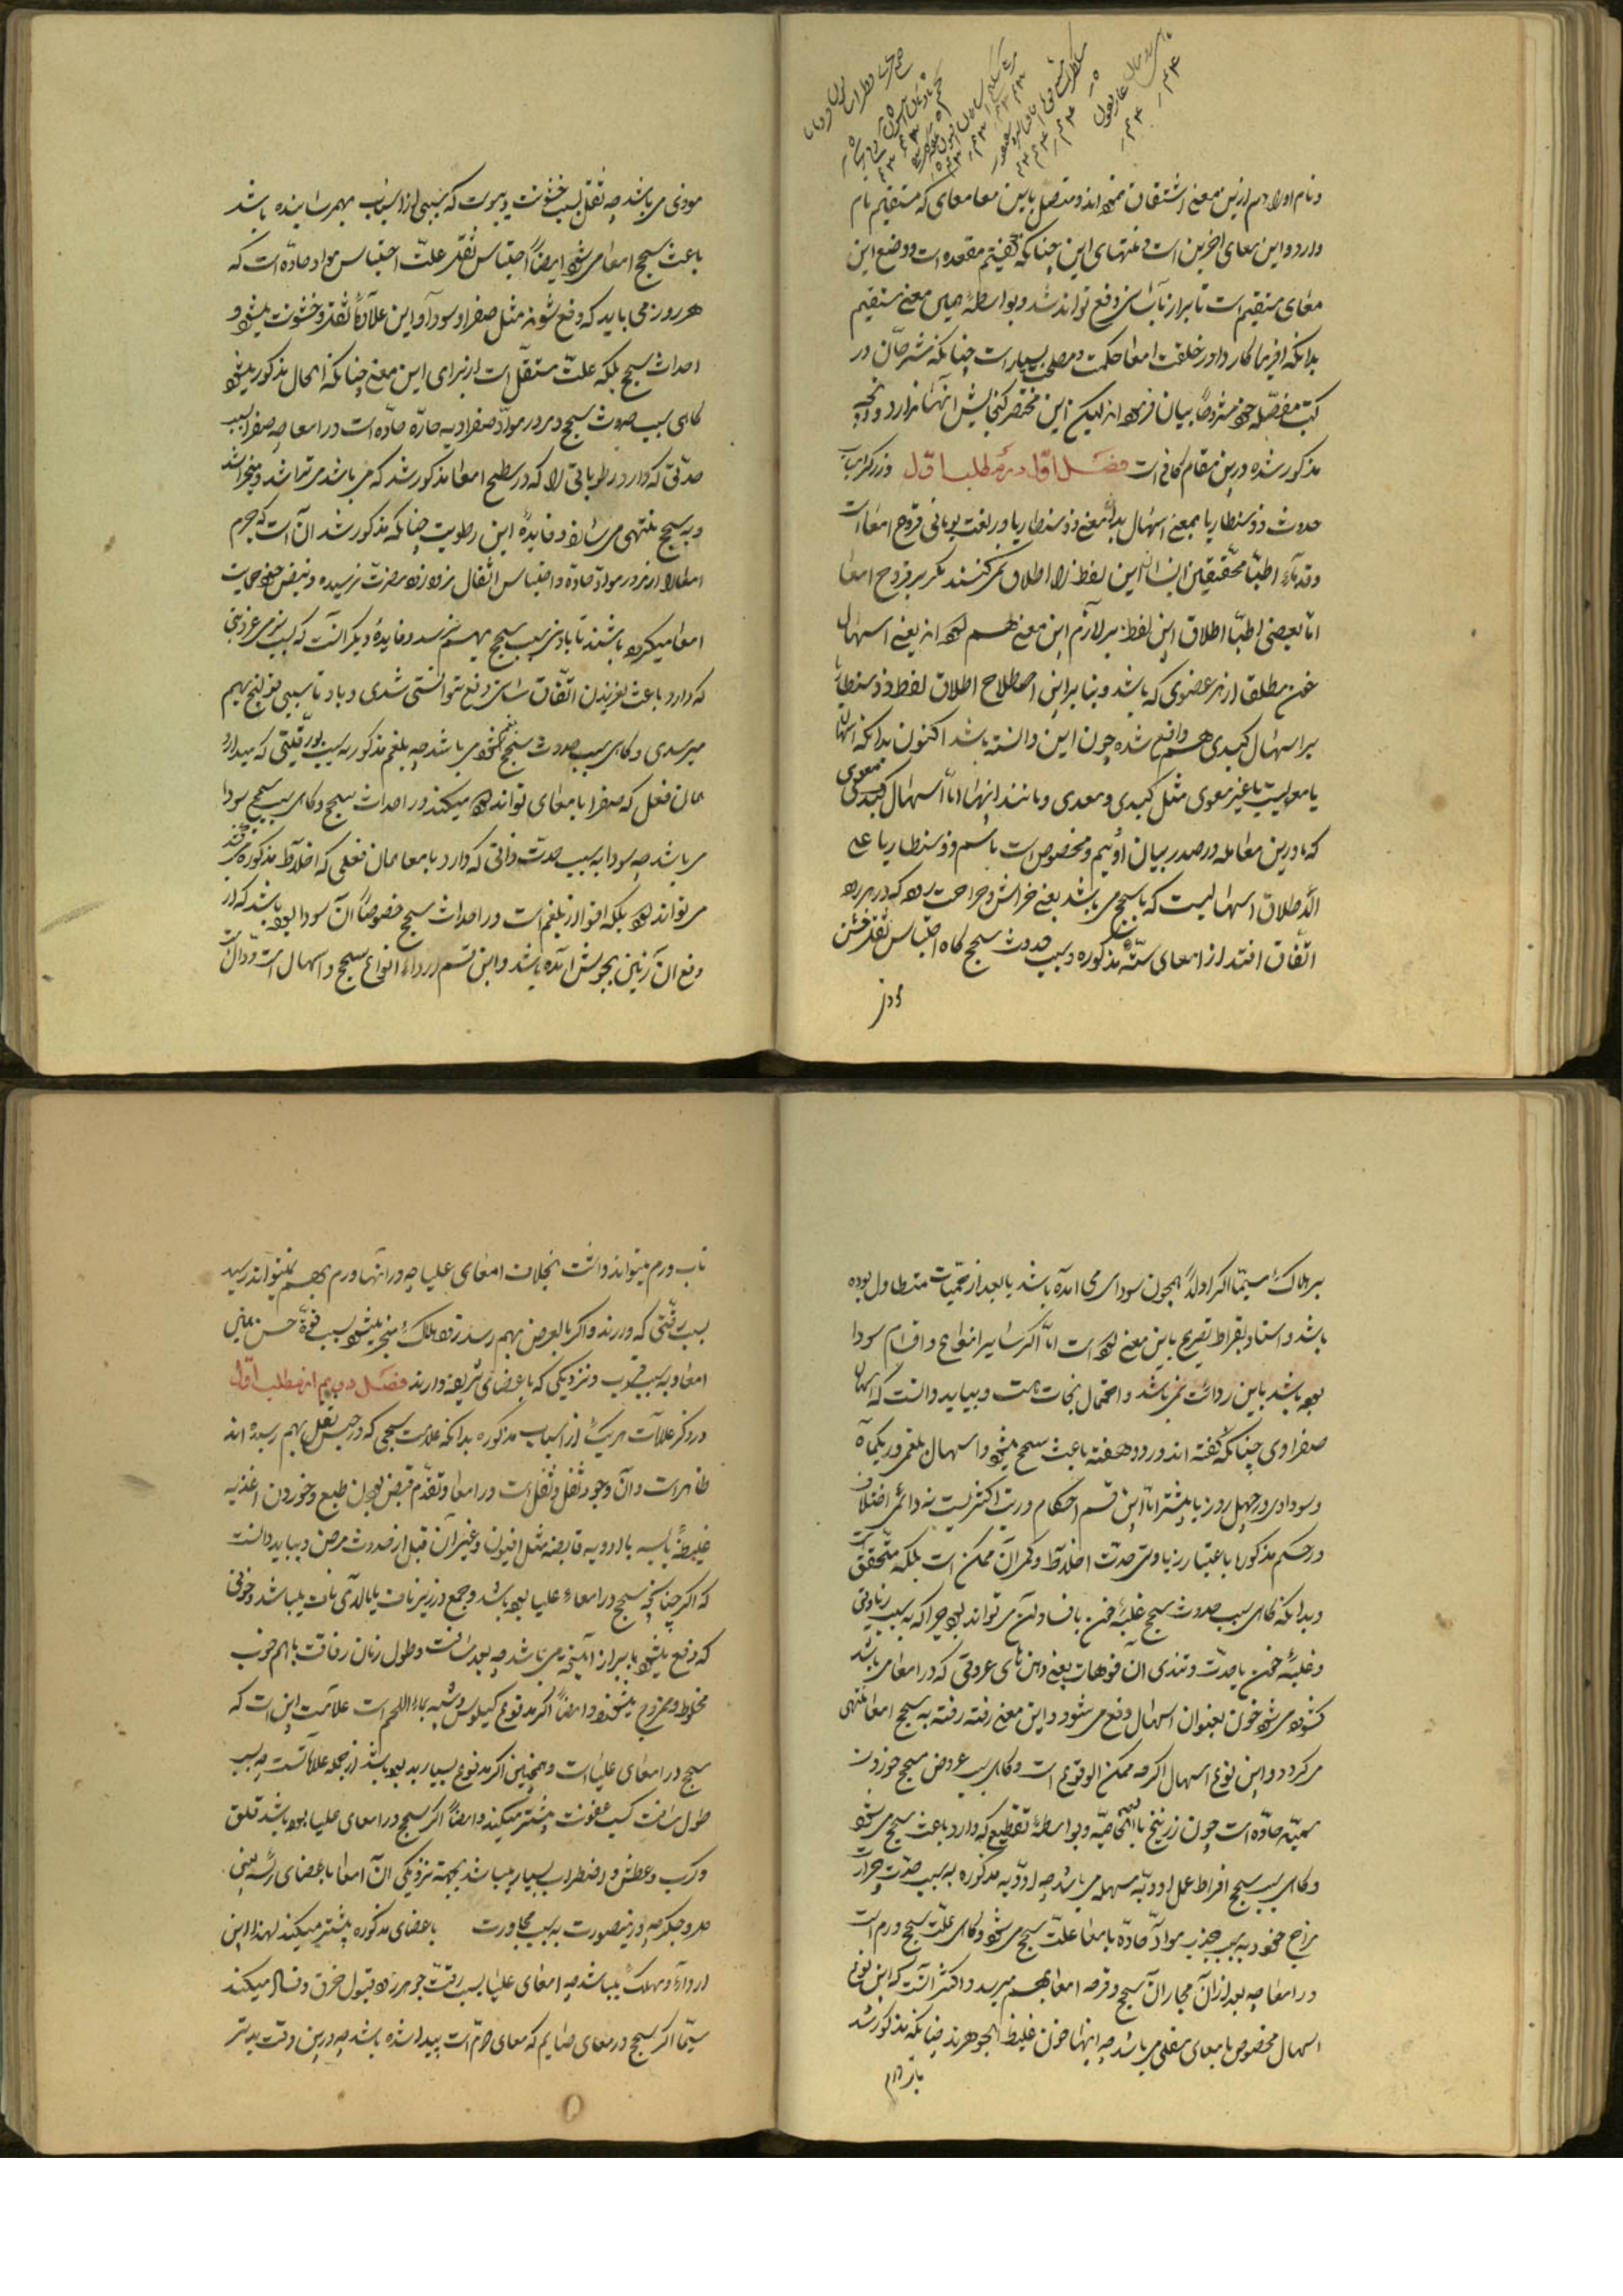 و نام اولا هم ازین معنی اشتقاق نموده‌اند و متصل باین معا معای که مستقیم نام
دارد و این معای آخرین است و منتهای این چنانکه گفتیم مقعده است و وضع این
معای مستقیم است تا براز بآسانی دفع تواند شد و بواسطهٔ همین معنی مستقیم
بدانکه افریدکار را در خلقت امعا حکمت و مصلحت بسیار است چنانکه مشرحان در
کتب مفصله خود مشروحاً بیان فرموده‌اند لیکن این مختصر کنجایش آنها ندارد و آنچه
مذکور شده درین مقام کافی است فصل اول در مطلب اول در ذکر اسباب
حدوث ذوسنطاریا بمعنی اسهال بدانکه معنی ذوسنطاریا در لغت یونانی قروح امعا است
و قدماء اطبا و محققین ایشان این لفظ را اطلاق نمیکنند مکر بر قروح امعا
اما بعضی اطبا اطلاق این لفظ بر لازم این معنی هم کرده‌اند یعنی اسهال
خون مطلقا از هر عضوی که باشد و بنا براین اصطلاح اطلاق لفظ ذوسنطاریا
بر اسهال کبدی هم واقع شده چون این دانسته باشد اکنون بدانکه اسهال
یا معویست یا غیر معوی مثل کبدی و معدی و مانند اینها اما اسهال معوی
که ما درین معامله در صدر بیان اوئیم و مخصوص است باسم ذوسنطاریا علی
الاطلاق اسهالیست که با سحج می‌باشد یعنی خراش و جراحت روده که در هر روده
اتفاق افتد از امعای ستهٔ مذکوره و سبب حدوث سحج کاه احتباس ثفل خشن
موذی می‌باشد چه ثفل بسبب خشونت و یبوست که بسببی از اسباب بهمرسانیده باشد
باعث سحج امعا می‌شود ایضاً احتباس ثفل علت احتباس مواد حاده است که
هر روز می باید که دفع شوند مثل صفرا و سودا و این علاوهٔ ثفل و خشونت میشود و
احداث سحج بلکه علت مستقل است از برای این معنی چنانکه الحال مذکور میشود
کاهی سبب حدوث سحج مرور مواد صفراویه حارهٔ حاده است در امعا چه صفرا بسبب
حدتی که دارد رطوباتی را که در سطح امعا مذکور شد که می باشد می تراشد و میخراشد
و به سحج منتهی می‌سازد و فایدهٔ این رطوبت چنانکه مذکور شد آن است که جرم
امعا را از مرور مواد حاده و احتباس اثفال زود زود مضرت نرسیده و نیز حمایت
امعا میکرده باشند تا بادنی سبب سحج بهم نرسد و فایدهٔ دیکر آنست که بسبب نرمی و غرویتی
که دارد باعث لغزیدن اثفال بآسانی دفع توانستی شدی و باد تا سببی قولنج بهم
میرسدی و کاهی سبب حدوث سحج بلغم شور می باشد چه بلغم مذکور به سبب بورقیتی که میدارد
همان فعل که صفرا با معای تواند کرد میکند در احداث سحج و کاهی سبب سحج سودا
می باشد چه سودا به سبب حدت ذاتی که دارد با معا همان فعلی که اخلاط مذکوره می‌کنند
می تواند کرد بلکه اقوا از بلغم است در احداث سحج خصوصاً آن سودا بوده باشد که از
دفع آن زمین بجوش آمده باشد و این قسم اردای انواع سحج و اسهال است و دال
بر هلاک سیما اکر اولاً همچون سودای می‌آمده باشد یا بعد از حمیات متطاول بوده
باشد و استاد بقراط تصریح باین معنی کرده است اما اکر سایر انواع و اقسام سودا
بوده باشد باین ردائت نمی‌باشد و احتمال نجات هست و بباید دانست که اسهال
صفراوی چنانکه گفته اند در دو هفته باعث سحج میشود و اسهال بلغمی در یکماه
و سوداوی در چهل روز یا بیشتر اما این قسم احکام درین اکثریست نه دائمی اختلاف
در حکم مذکوره باعتبار زیادتی حدت اخلاط و کمی آن ممکن است بلکه متحقق
و بدانکه کاهی سبب حدوث سحج غلبهٔ خون با فساد آن می تواند بود چرا که به سبب زیادتی
و غلبهٔ خون با حدت و تندی آن فوهات یعنی دهن های عروقی که در امعا می باشد
کشوده می‌شود خون بعنوان اسهال دفع می شود و این معنی رفته رفته به سحج امعا منتهی
می کردد و این نوع اسهال اکرچه ممکن الوقوع است و کاهی سبب عروض سحج خوردن
سمیهٔ حاده است چون زرنیخ بالخاصیه و بواسطهٔ تقطیع که دارد باعث سحج می شود
و کاهی سبب سحج افراط عمل ادویهٔ مسهله می باشد چه ادویهٔ مذکوره به سبب حدت و حرارت
مزاج خود به سبب جذب مواد حاده با معا علت سحج می شود و کاهی علت سحج ورم است
در امعا چه بعد از آن مجاران سحج و قرحه امعا بهم میرسد و اکثر آنست که این نوع
اسهال مخصوص با معای سفلی می باشد چه اینها خون غلیظ الجوهرند چنانکه مذکور شد
تاب ورم میتواند داشت بخلاف امعای علیا چه در آنها ورم بهم نمیتواند رسید
بسبب رقتی که دارند و اکر بالعرض بهم رسد زود بهلاک منجر میشود بسبب قوة حس این
امعا و به سبب قرب و نزدیکی که با عضای شریفه دارند فصل دویم از مطلب اول
در ذکر علامت هریک از اسباب مذکوره بدانکه علامت سحجی که در حبس ثفل بهم رسیده اند
ظاهر است و آن وجود ثفل و ثقل است در امعا و تقدم قبض بودن طبع و خوردن اغذیه
غلیظهٔ یابسه یا ادویه قابضه مثل افیون و غیر آن قبل از حدوث مرض و بباید دانست
که اکر چنانچه سحج در امعاء علیا بوده باشد وجع در زیر ناف یا بالای ناف میباشد و خونی
که دفع میشود با براز آمیخته می باشد چه بعد مسافت و طول زمان رفاقت باهم خوب
مخلوط و ممزوج میشوند و ایضاً اکر مدفوع کیلوس و شبیه بماء اللحم است علامت این است که
سحج در امعای علیا است و همچنین اکر مدفوع بسیار بد بو باشد از جمله علاماتست چه بسبب
طول مسافت کسب عفونت بیشتر میکند و ایضاً اکر سحج در امعای علیا بوده باشد قلق
و کرب و عطش و اضطراب بسیار میباشد بجهة نزدیکی آن امعا با عضای رئیسه یعنی
دل و جکر چه درینصورت به سبب مجاورت باعضای مذکوره بیشتر میکند لهذا این
اردا و مهلک میباشد چه امعای علیا بسبب رقت جوهر زود قبول خرق و فساد میکند
سیما اکر سحج در معای صایم که معای دوم است پیدا شده باشد چه درین وقت بدتر